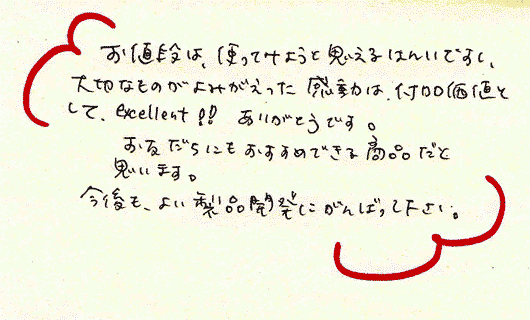 お値段は、使ってみようと思えるはんいですし、
大切なものがよみがえった感動は、付加価値と
して、excellent!! ありがとうです。
お友だちにもおすすめできる商品だと
思います。
今後も、よい製品開発にがんばって下さい。